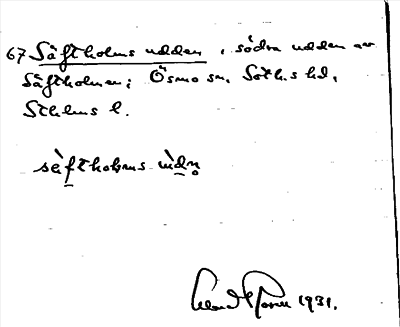 67 Säftholms udden, södra udden av
Säftholmen; Ösmo sn, Soth.s hd,
Sthlms l.
sèftholms ùdn̥
1931.